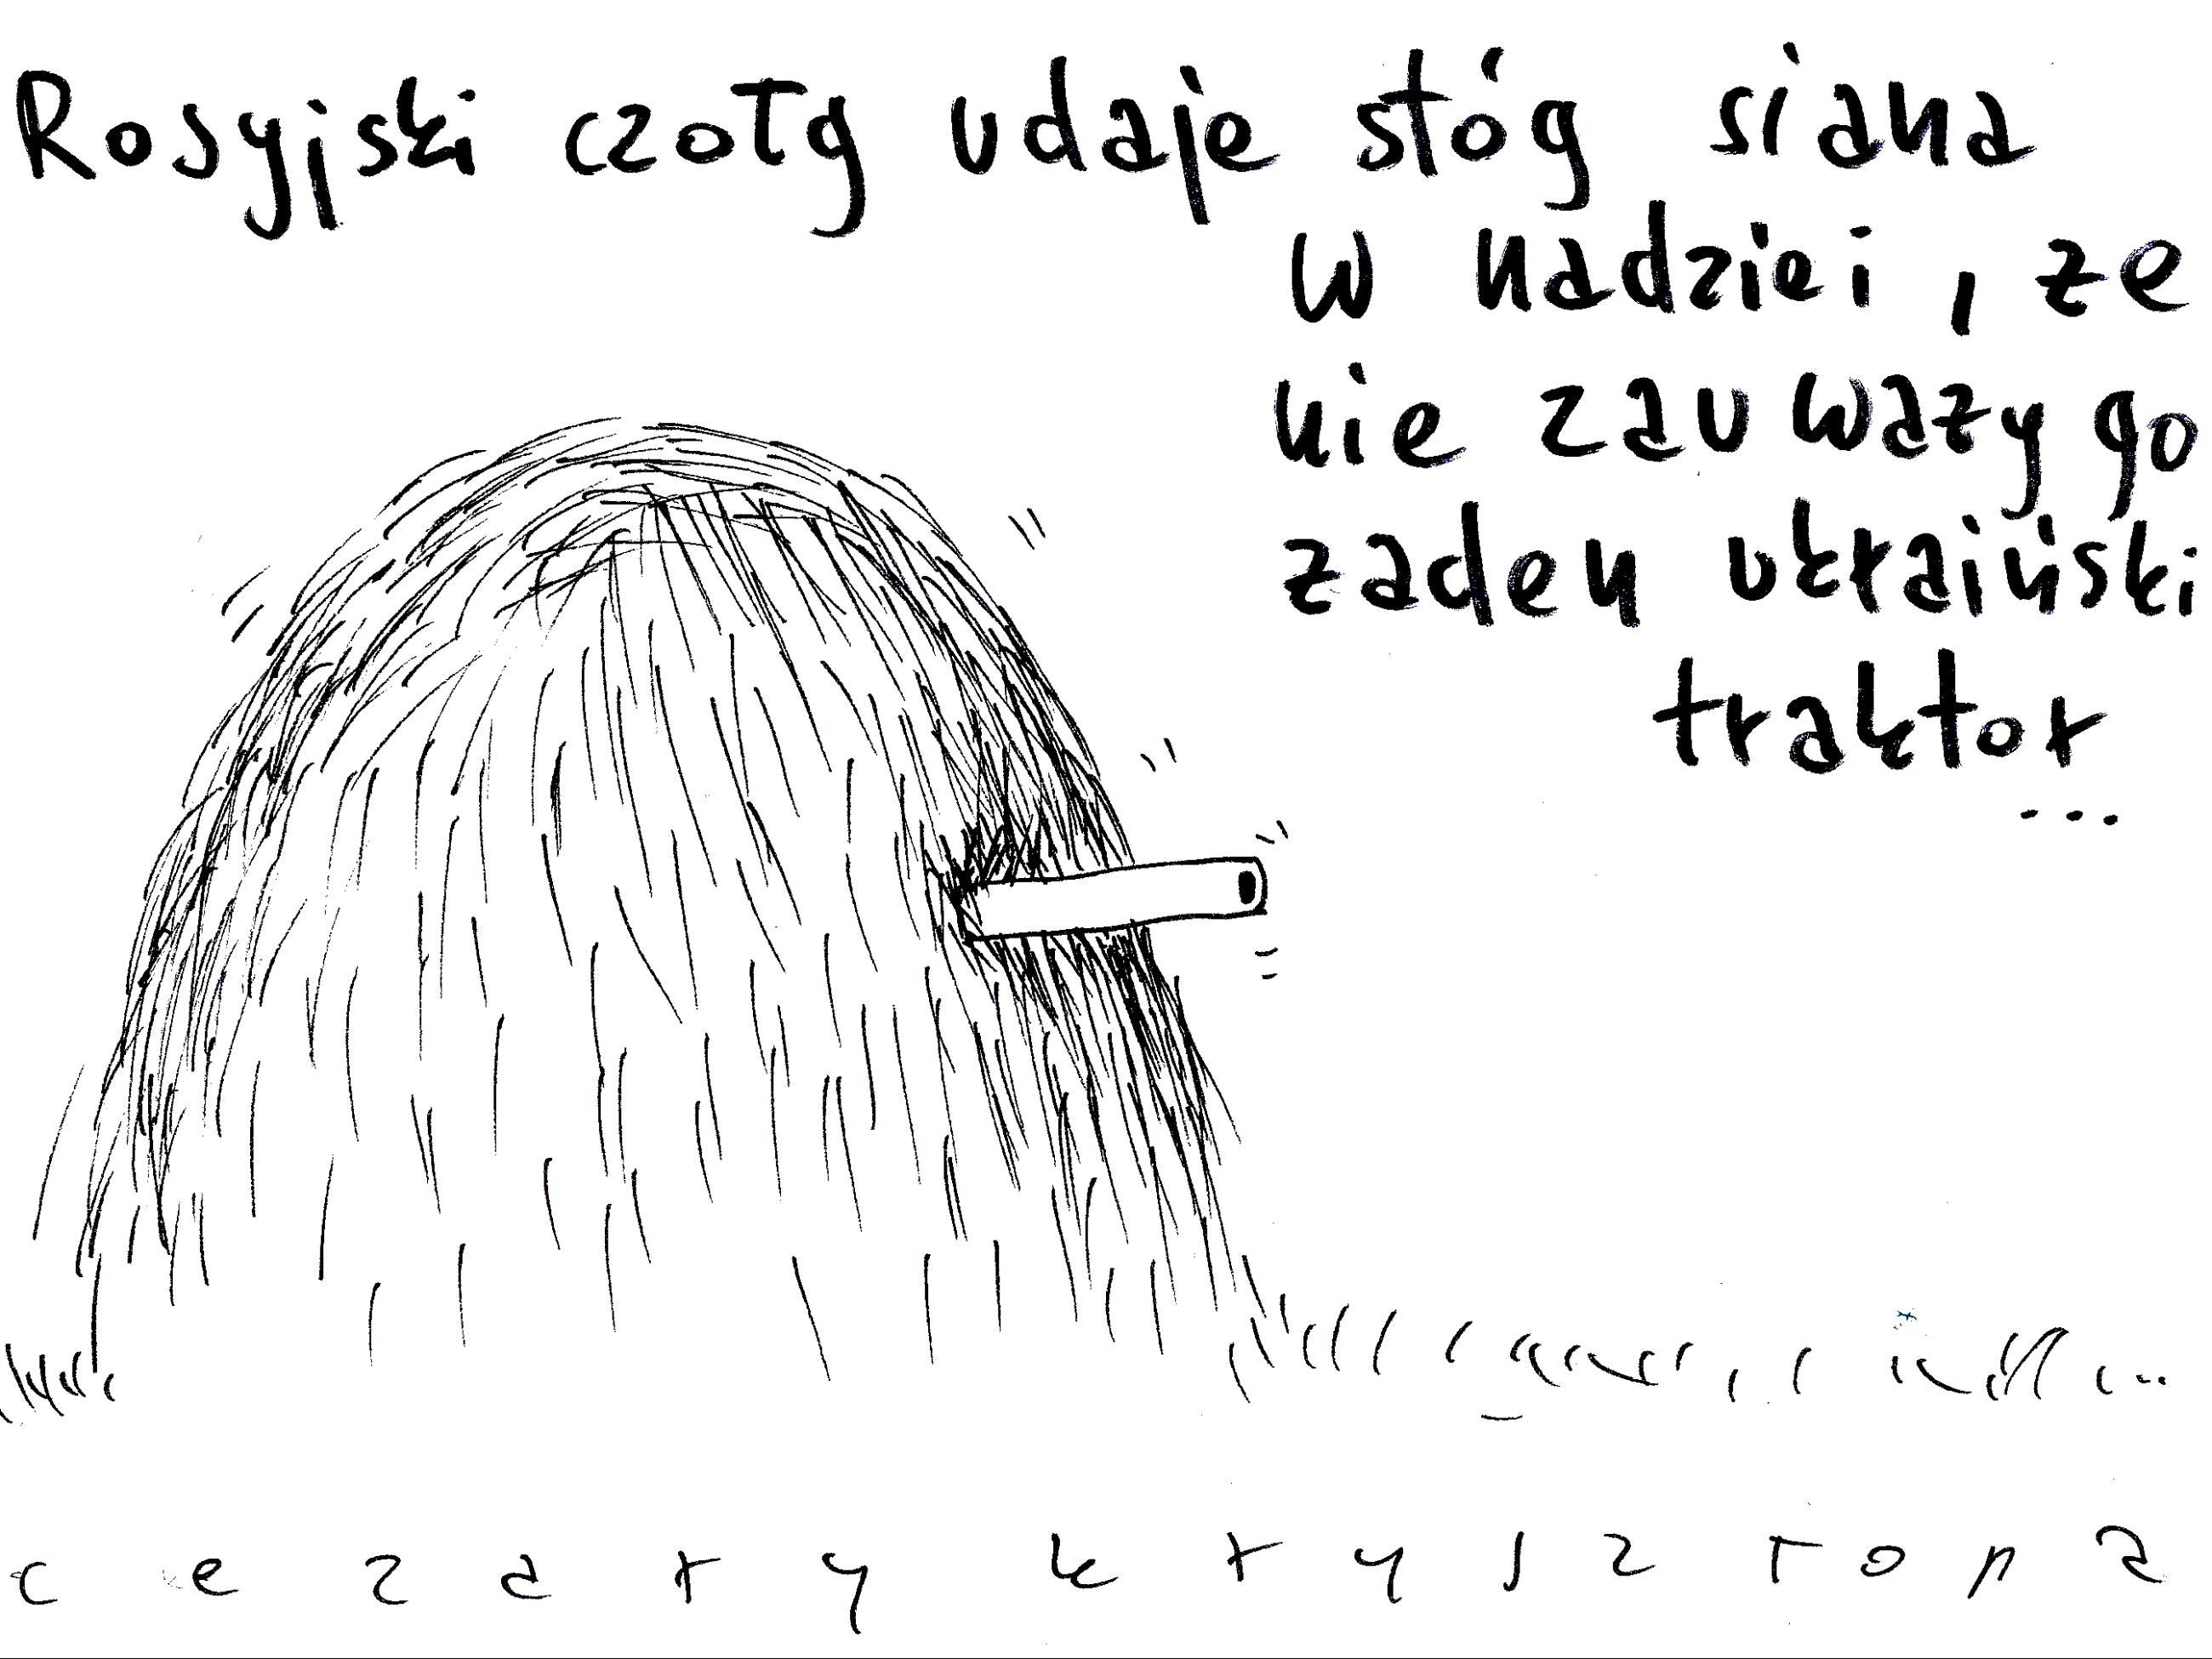 Rosyjski czołg udaje stóg siana
w nadziei, że
nie zauważy go
żaden ukraiński
traktor
...
cezary krysztopa